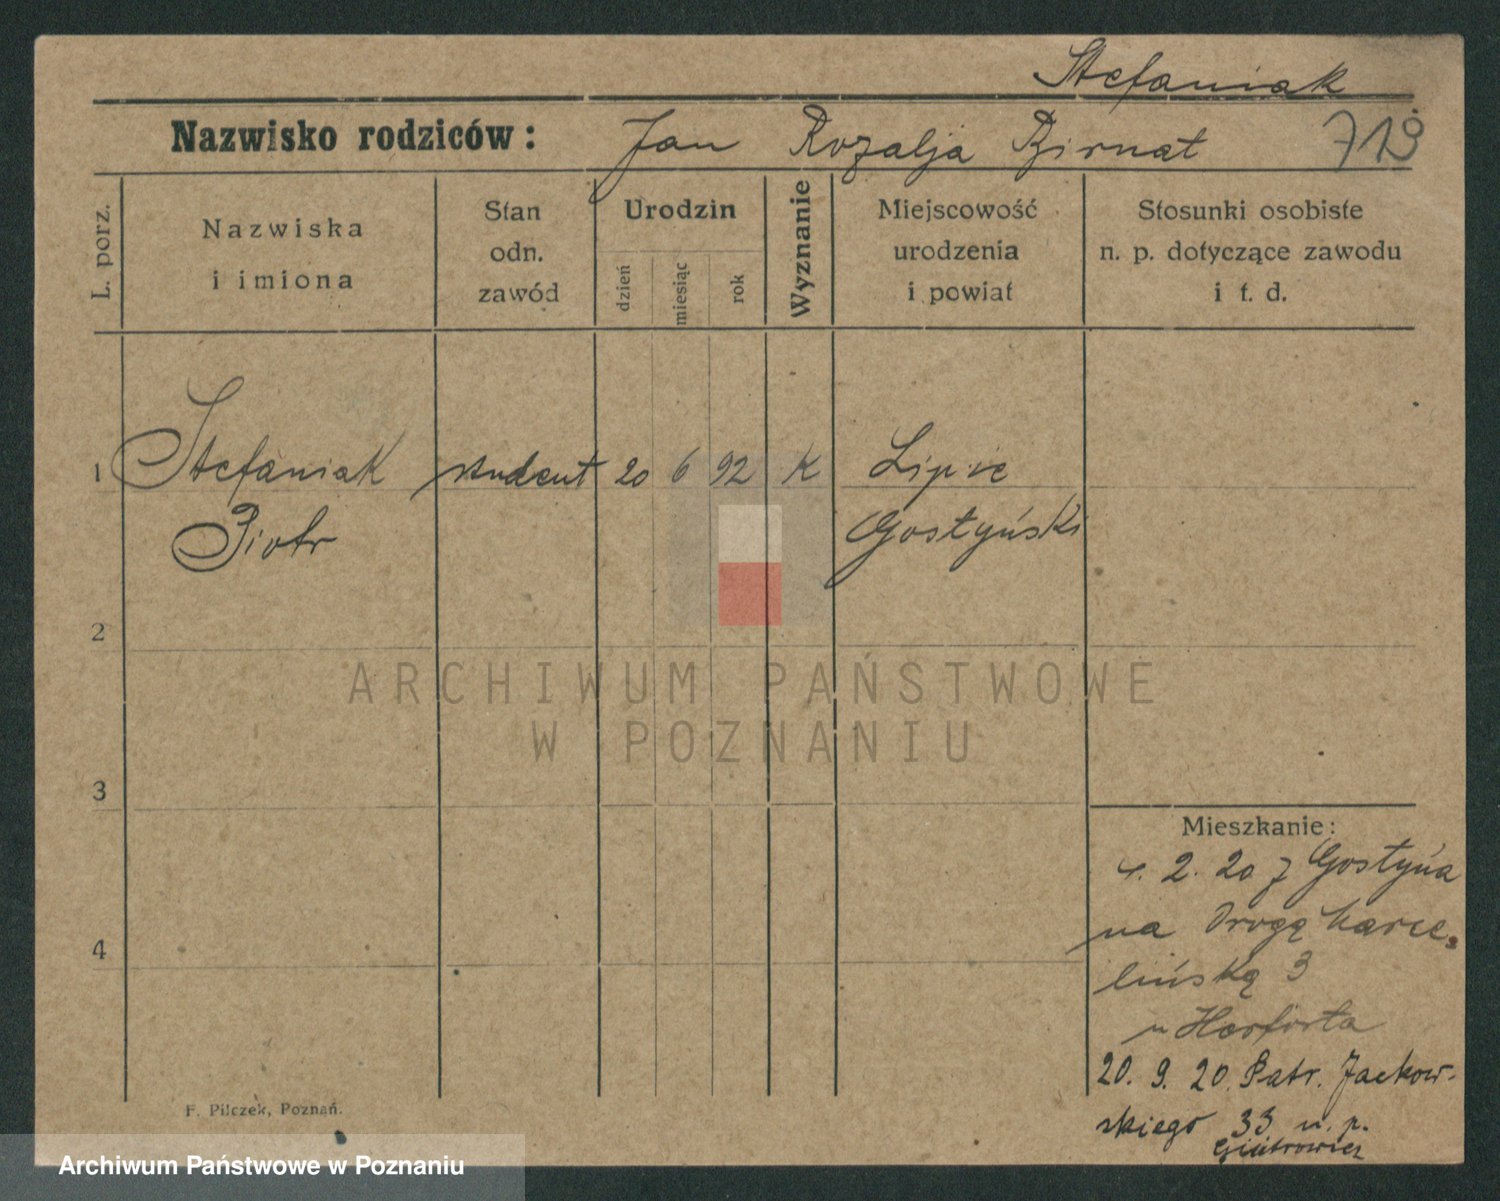 Stefaniak
Nazwisko rodziców: Jan Rozalja Birnat 719
L. porz.
Nazwiska
i imiona
Stan
odn.
zawód
Urodzin
dzień
miesiąc
rok
Wyznanie
Miejscowość
urodzenia
i powiat
Stosunki osobiste
n. p. dotyczące zawodu
i t. d.
1 Stefaniak student 20 6 92 K Lipie
Piotr Gostyński
2
3
4
ARCHIWUM PAŃSTWOWE
W POZNANIU
Mieszkanie:
2. 20 z Gostynia
na Drogę Marce-
lińską 3
u
20. 9. 20. Patr. Jackow-
skiego 33 u. p.
F. Pilczek, Poznań.
Archiwum Państwowe w Poznaniu